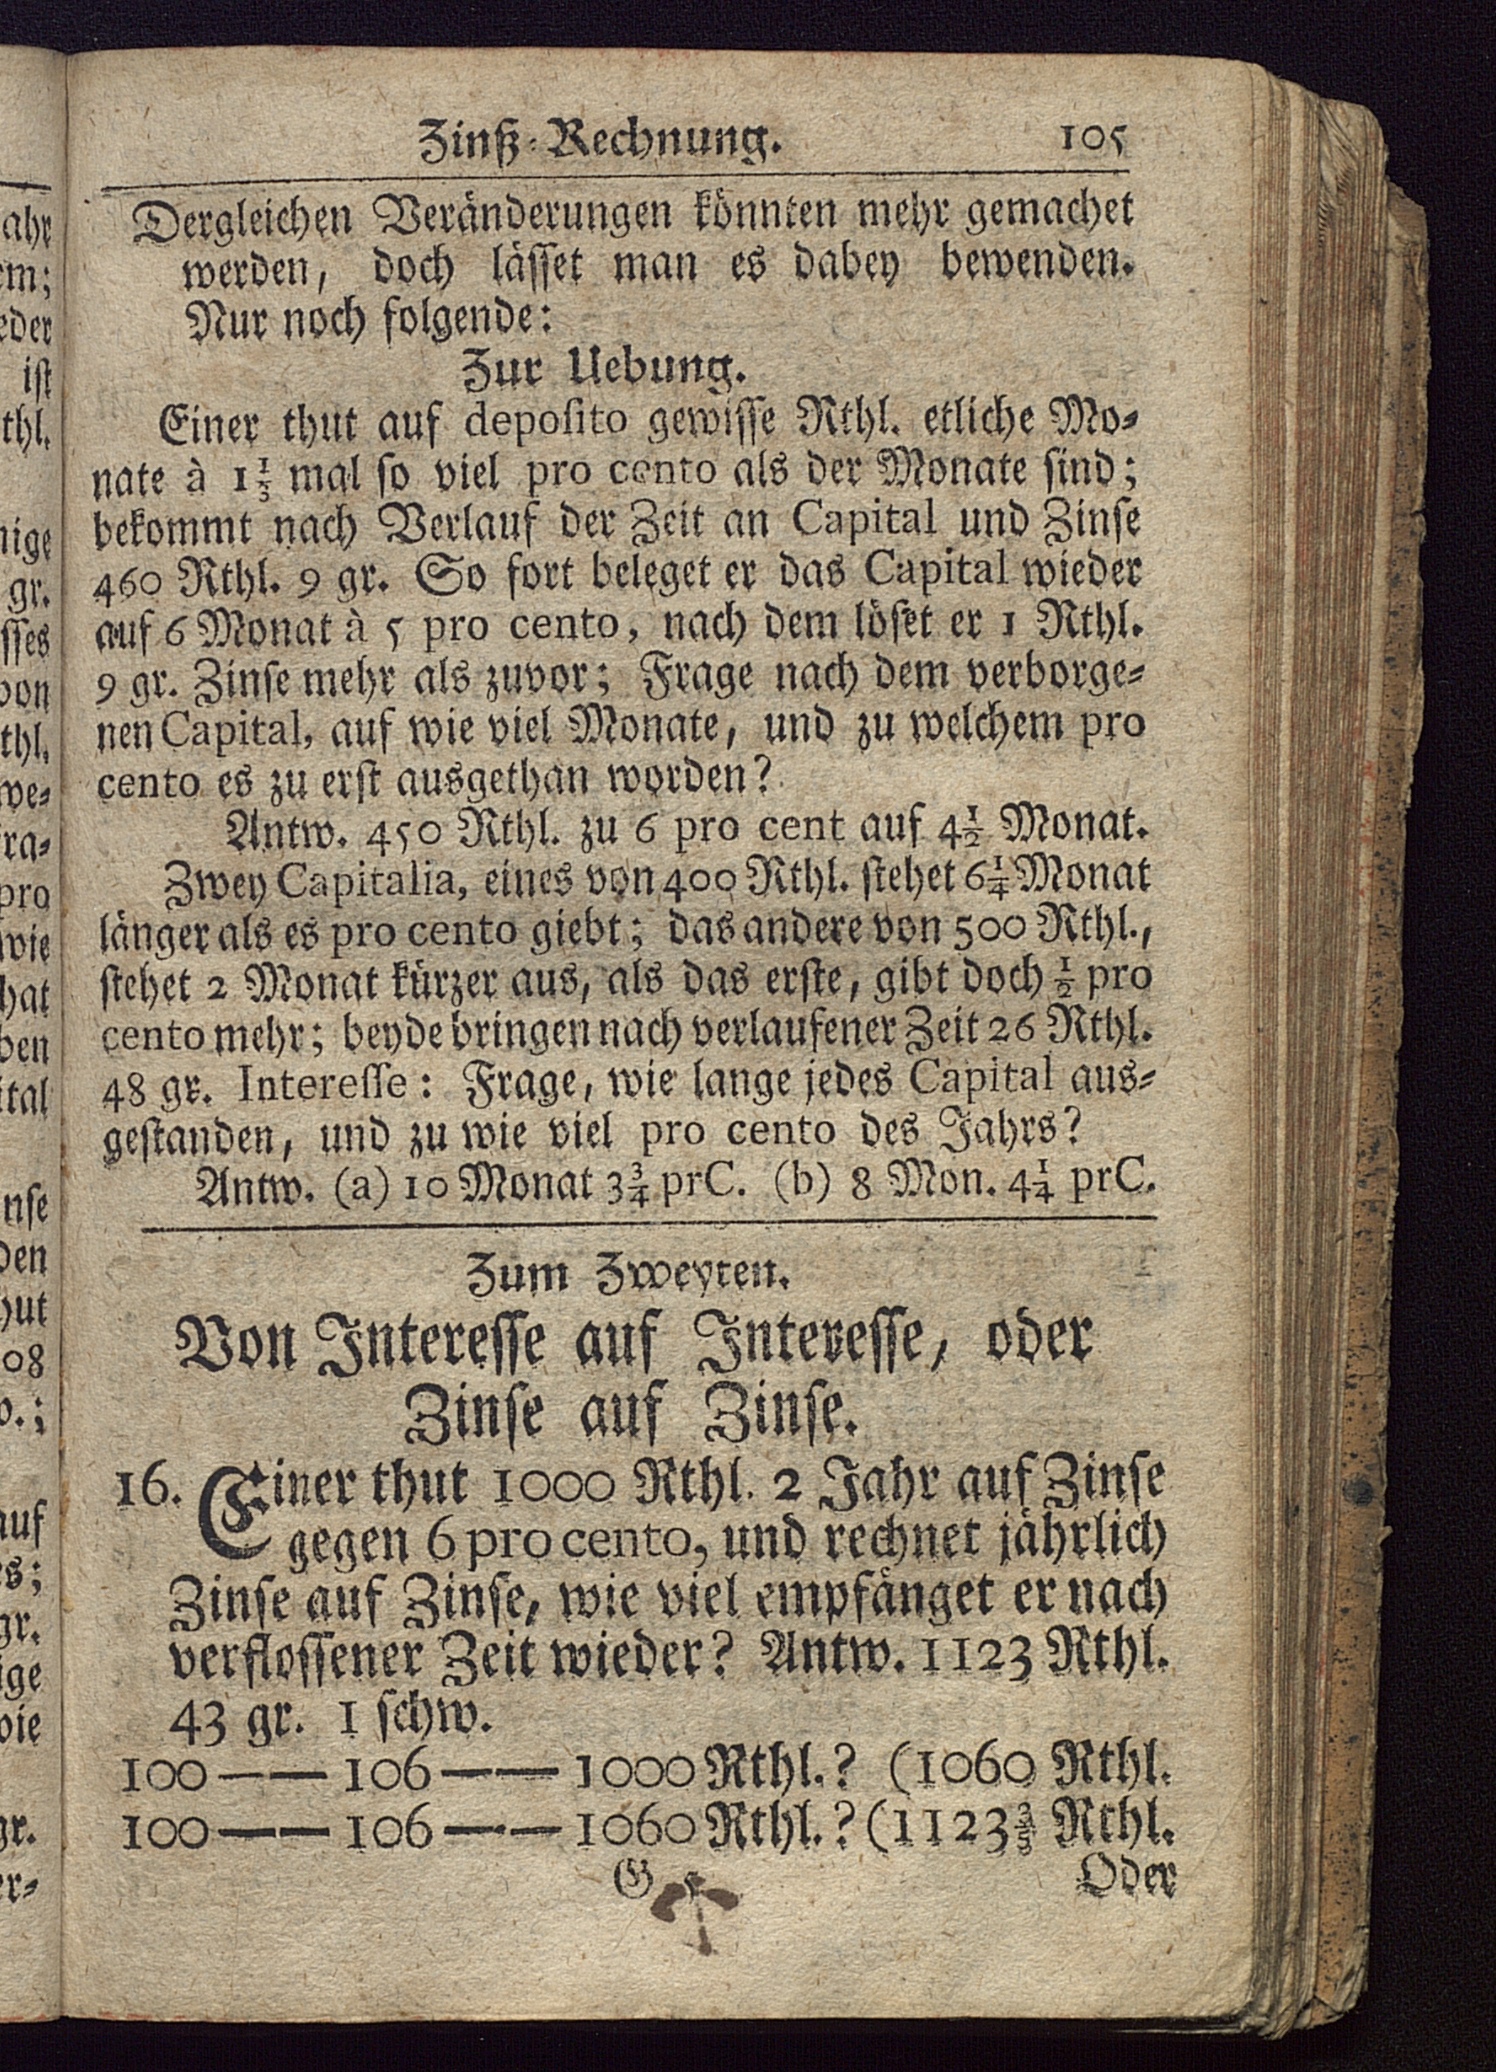 Zinß-Rechnung. 105
Dergleichen Veränderungen könnten mehr gemachet
werden, doch lässet man es dabey bewenden.
Nur noch folgende:
Zur Uebung.
Einer thut auf deposito gewisse Rthl. etliche Mo-
nate à 1 1/3 mal so viel pro cento als der Monate sind;
bekommt nach Verlauf der Zeit an Capital und Zinse
460 Rthl. 9 gr. So fort beleget er das Capital wieder
auf 6 Monat à 5 pro cento, nach dem löset er 1 Rthl.
9 gr. Zinse mehr als zuvor; Frage nach dem verborge-
nen Capital, auf wie viel Monate, und zu welchem pro
cento es zu erst ausgethan worden?
Antw. 450 Rthl. zu 6 pro cent auf 4 1/2 Monat.
Zwey Capitalia, eines von 400 Rthl. stehet 6 1/4 Monat
länger als es pro cento giebt; das andere von 500 Rthl.,
stehet 2 Monat kürzer aus, als das erste, gibt doch 1/2 pro
cento mehr; beyde bringen nach verlaufener Zeit 26 Rthl.
48 gr. Interesse: Frage, wie lange jedes Capital aus-
gestanden, und zu wie viel pro cento des Jahrs?
Antw. (a) 10 Monat 3 3/4 prC. (b) 8 Mon. 4 1/4 prC.
Zum Zweyten.
Von Interesse auf Interesse, oder
Zinse auf Zinse.
16. Einer thut 1000 Rthl. 2 Jahr auf Zinse
gegen 6 pro cento, und rechnet jährlich
Zinse auf Zinse, wie viel empfänget er nach
verflossener Zeit wieder? Antw. 1123 Rthl.
43 gr. 1 schw.
100 — — 106 — — 1000 Rthl.? (1060 Rthl.
100 — — 106 — — 1060 Rthl.? (1123 3/5 Rthl.
G 5 Oder